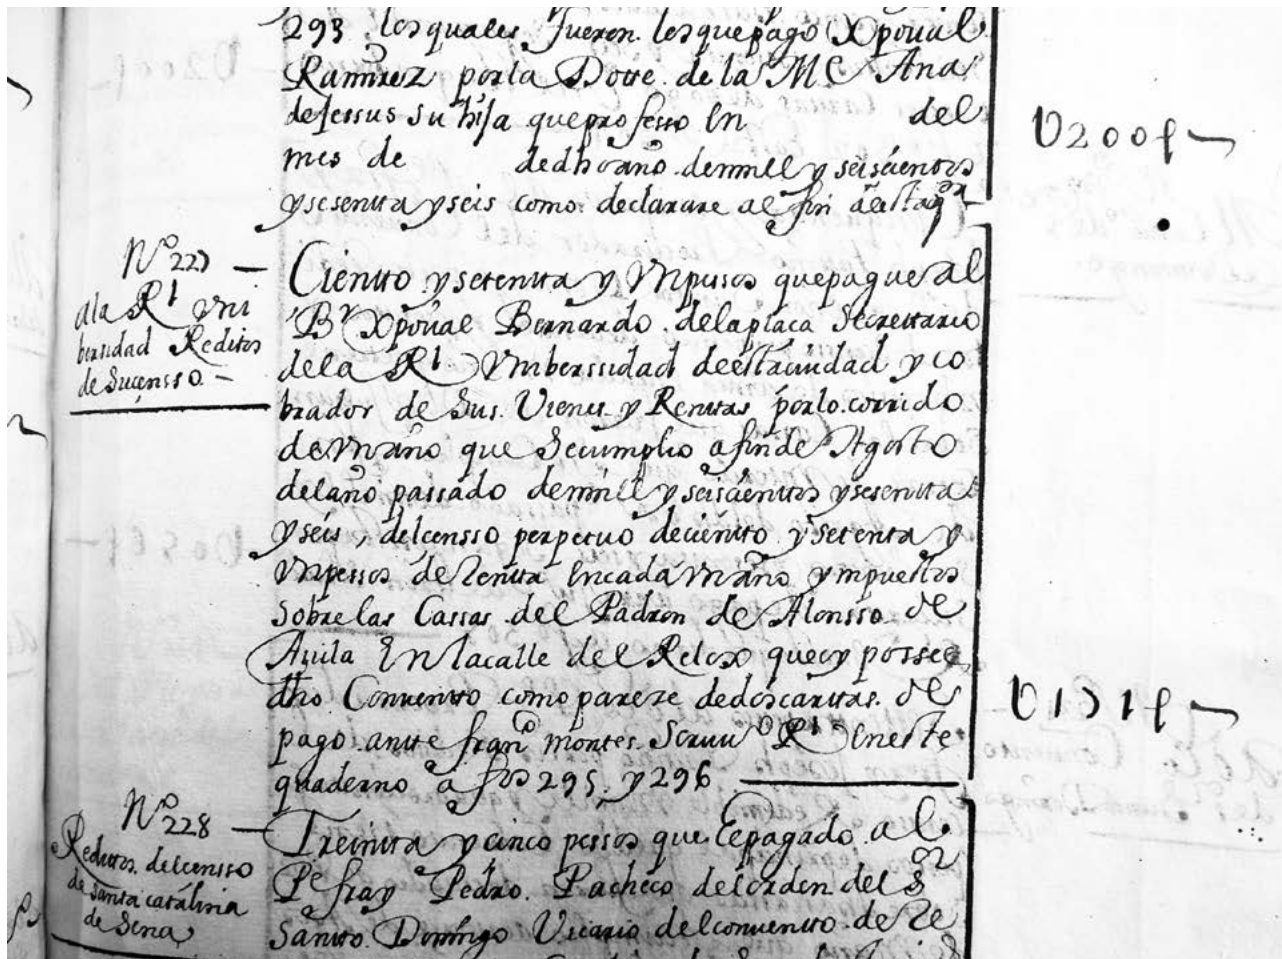 293 los quales fueron los que pago Xpoual
Ramirez por la Dotte de la Me Ana
de Jessus su hija que professo En del
mes de de dho año de mill y seiscientos
U200p
y sesentta y seis como declarare al fin desta qta
No 227
a la Rl Vni
bersidad Reditos
de su censso
Ciento y setentta y Vn pessos que pague al
Br Xpoual Bernardo de la plaça Secrettario
de la Rl Vniberssidad desta ciudad y co
brador de sus Vienes y Renttas por lo corrido
de Vn año que se cumplio a fin de Agosto
del año passado de mill y seiscienttos y sesentta
y seis, del censso perpetuo de ciento y setenta y
Vn pessos de Rentta En cada Vn año ymputtos
sobre las Cassas del Padron de Alonsso de
Auila En la calle del Relox que oy possee
dho Conuentto como pareze de dos carttas de
pago antte franco montes Scriuo Rl En este
quaderno a fos 295 y 296
U171p
No 228
Reditos del censso
de Santa catalina
de Sena
Treintta y cinco pessos que E pagado al
Pe fray Pedro Pacheco del orden del Sor
Santto Domingo Vicario del conuentto de Re